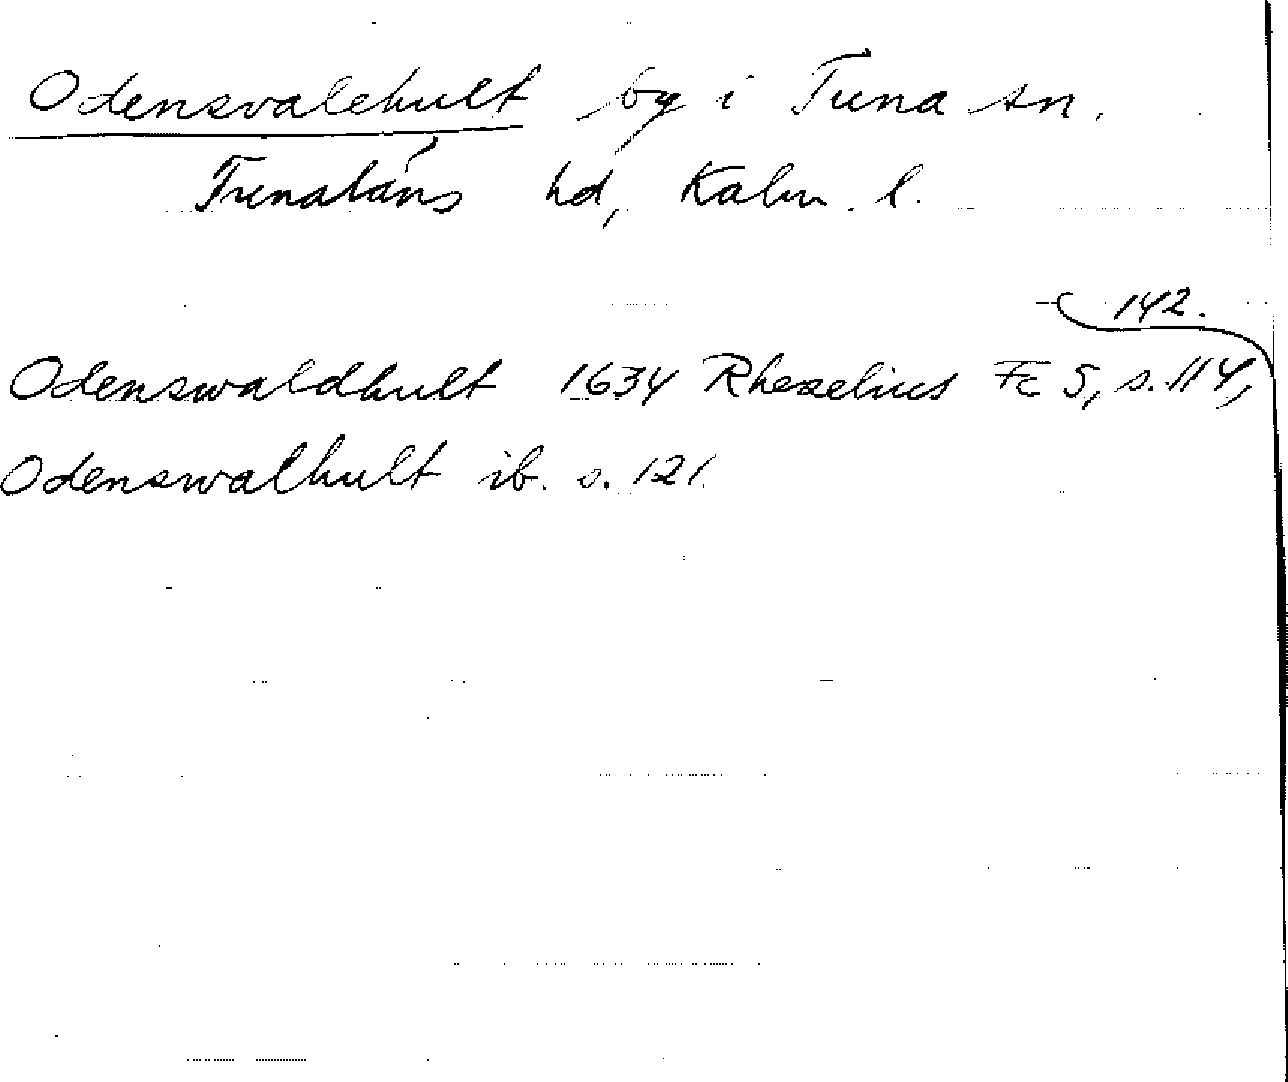 Odensvalehult by i Tuna sn.
Tunaläns hd, Kalm. l.
142.
Odenswaldhult 1634 Rhezelius Fc 5, s. 114,
Odenswalhult ib. s. 121.